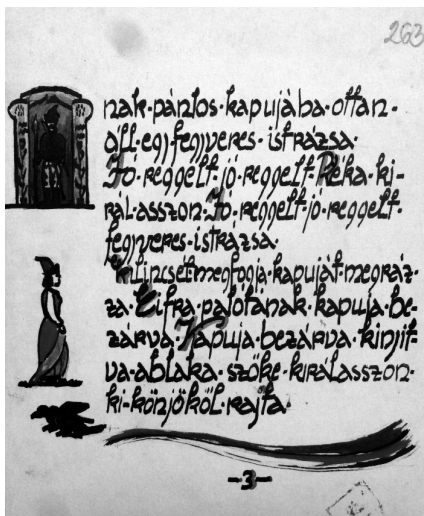 263
nak·pántos·kapujába·ottan·
áll·egy·fegyveres·istrázsa·
Jó·reggelt·jó·reggelt·Réka·ki-
rál·asszon·Jó·reggelt·jó·reggelt·
fegyveres·istrázsa·
Kilincset·megfogja·kapuját·megráz-
za·Cifra·palotának·kapuja·be-
zárva·Kapuja·bezárva·kinjit-
va·ablaka·szőke·királasszon·
ki·könjököl·rajta·
-3-